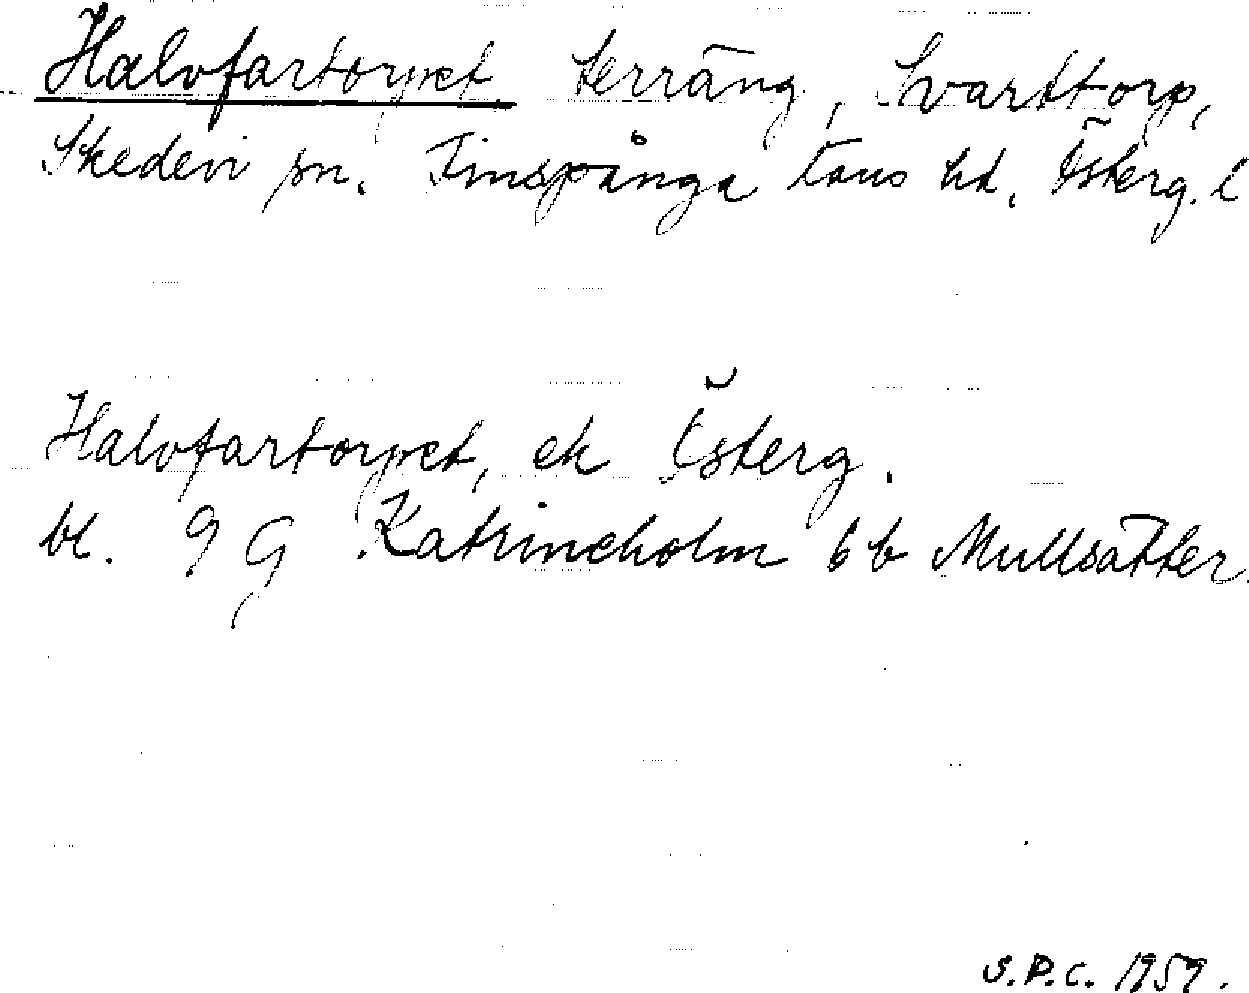 Halvfartorpet, terräng, Svarttorp,
Skedevi sn. Finspånga läns hd. Österg. l
Halvfartorpet, ek Österg.
bl. 9 G Katrineholm 6 b Mullsätter.
S.P.C. 1959.